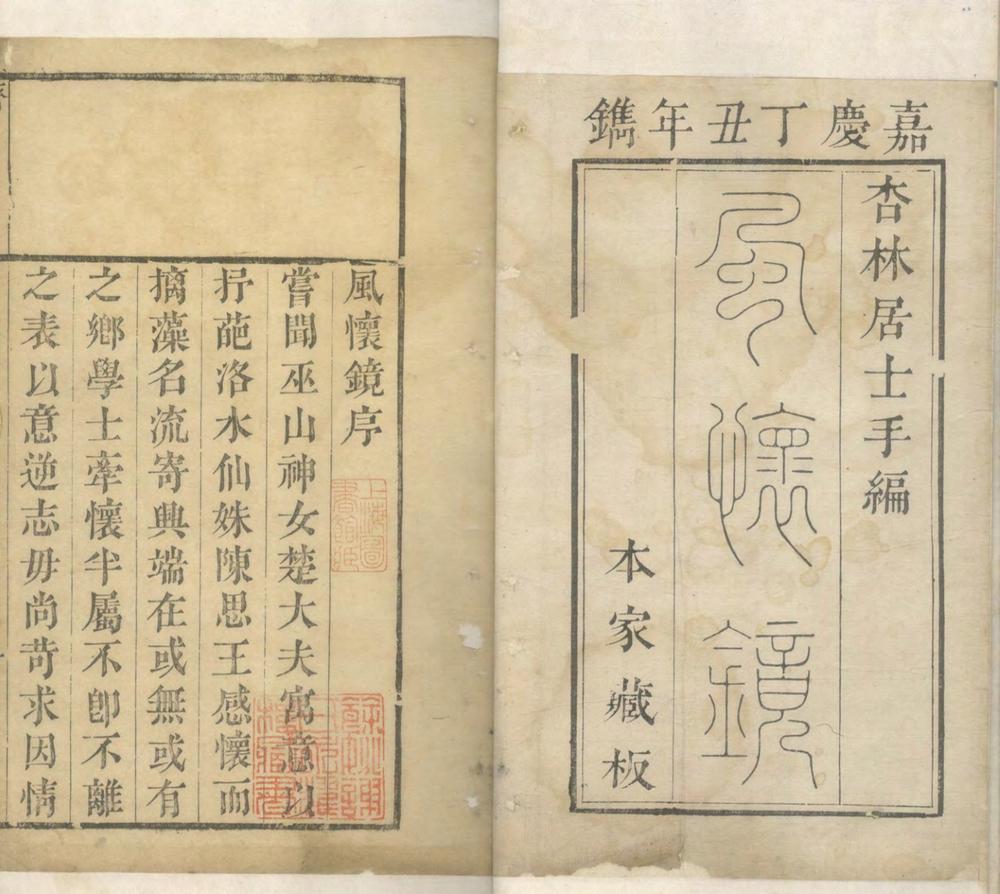 嘉慶丁丑年鐫
杏林居士手編
風懷鏡
本家藏板
風懷鏡序
嘗聞巫山神女楚大夫寓意以
抒葩洛水仙姝陳思王感懷而
摛藻名流寄興端在或無或有
之鄉學士牽懷半屬不卽不離
之表以意逆志毋尚苛求因情
上海圖
書館藏